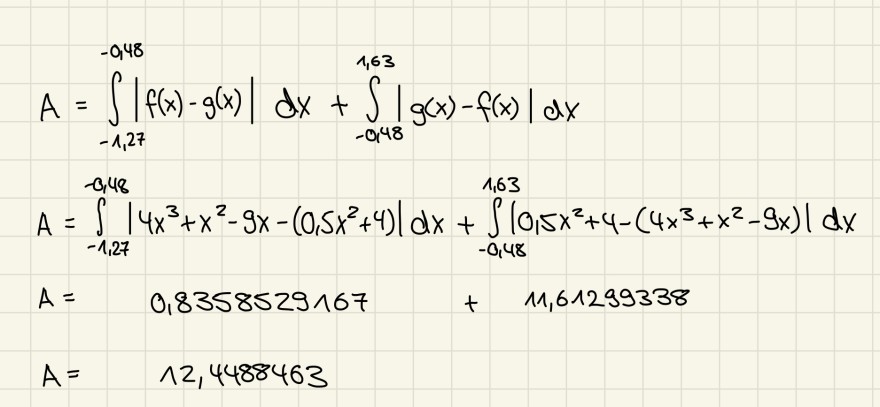 A = ∫_{-1,27}^{-0,48} |f(x) - g(x)| dx + ∫_{-0,48}^{1,63} |g(x) - f(x)| dx
A = ∫_{-1,27}^{-0,48} |4x³+x²-9x-(0,5x²+4)| dx + ∫_{-0,48}^{1,63} |0,5x²+4-(4x³+x²-9x)| dx
A = 0,8358529167 + 11,61299338
A = 12,4488463